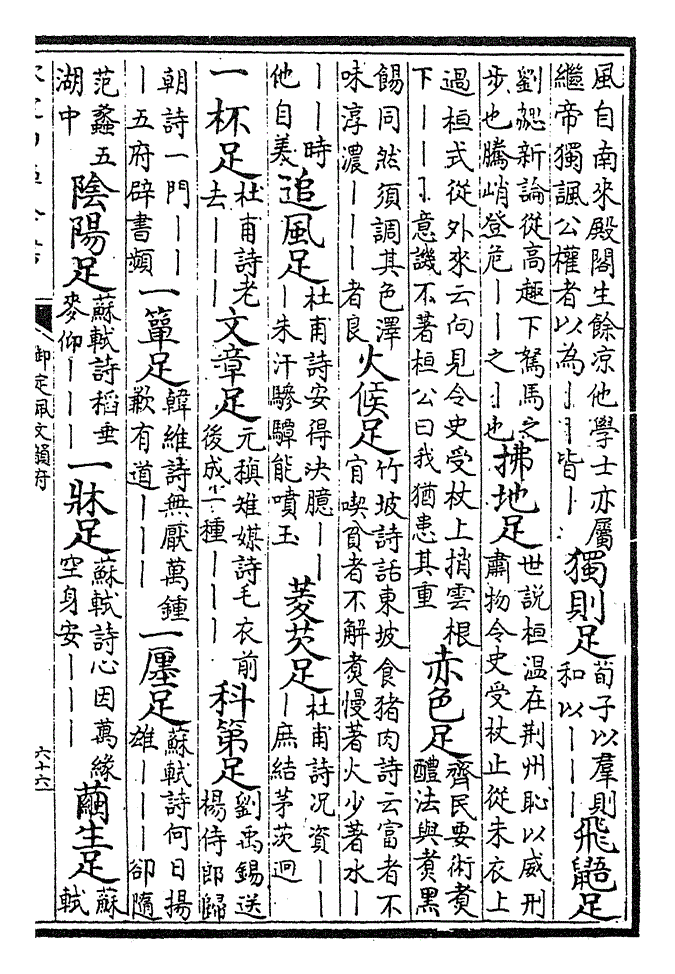 風自南來殿閣生餘凉他學士亦屬
繼帝獨諷公權者以為丨丨皆丨丨
獨則足
荀子以羣則
和以丨丨丨
飛鼯足
劉勰新論從高趣下駑馬之
步也騰峭登危丨丨之丨也
拂地足
世説桓温在荆州恥以威刑
肅物令史受杖止從朱衣上
過桓式從外來云向見令史受杖上捎雲根
下丨丨丨意譏不著桓公曰我猶患其重
赤色足
齊民要術煮
醴法與煮黑
餳同然須調其色澤
味淳濃丨丨丨者良
火候足
竹坡詩話東坡食猪肉詩云富者不
肎喫貧者不解煮慢著火少著水丨
丨丨時
他自美
追風足
杜甫詩安得決臆丨丨
丨朱汗驂驔能噴玉
菱芡足
杜甫詩况資丨丨
丨庶結茅茨迥
一杯足
杜甫詩老
去丨丨丨
文章足
元稹雉媒詩毛衣前
後成一種丨丨丨
科第足
劉禹錫送
楊侍郎歸
朝詩一門丨丨
丨五府辟書頻
一簞足
韓維詩無厭萬鍾
歉有道丨丨丨
一廛足
蘇軾詩何日揚
雄丨丨丨卻隨
范蠡五
湖中
陰陽足
蘇軾詩稻垂
麥仰丨丨丨
一牀足
蘇軾詩心因萬緣
空身安丨丨丨
繭生足
蘇
軾
御定佩文韻府
六十六